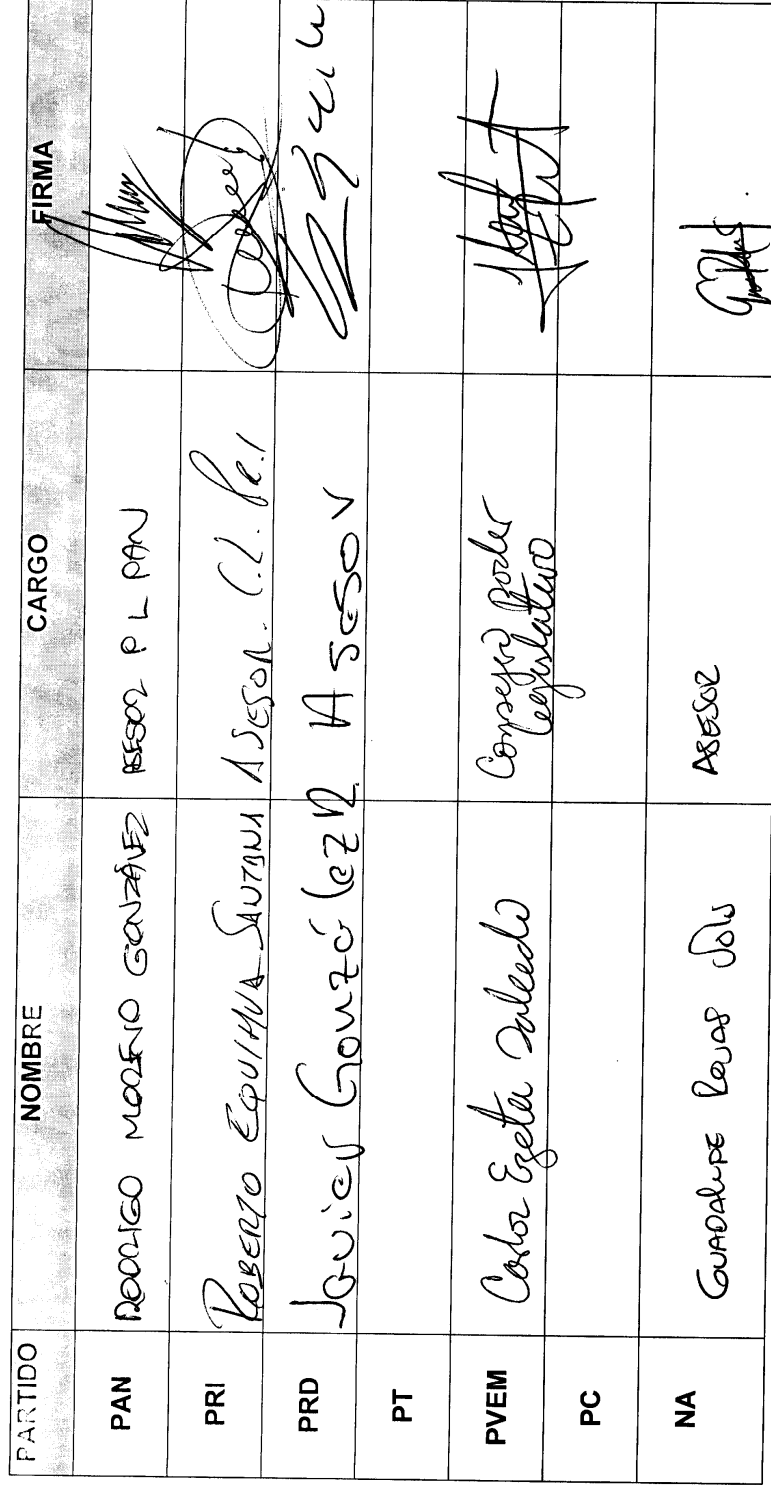 PARTIDO NOMBRE CARGO FIRMA
PAN RODRIGO MORENO GONZÁLEZ ASESOR P L PAN
PRI ROBERTO EQUIHUA SANTANA ASESOR. C.L. PRI
PRD Javier González R. Asesor
PT
PVEM Carlos Ezeta Salcedo Consejero Poder
Legislativo
PC
NA GUADALUPE ROJAS ASESOR